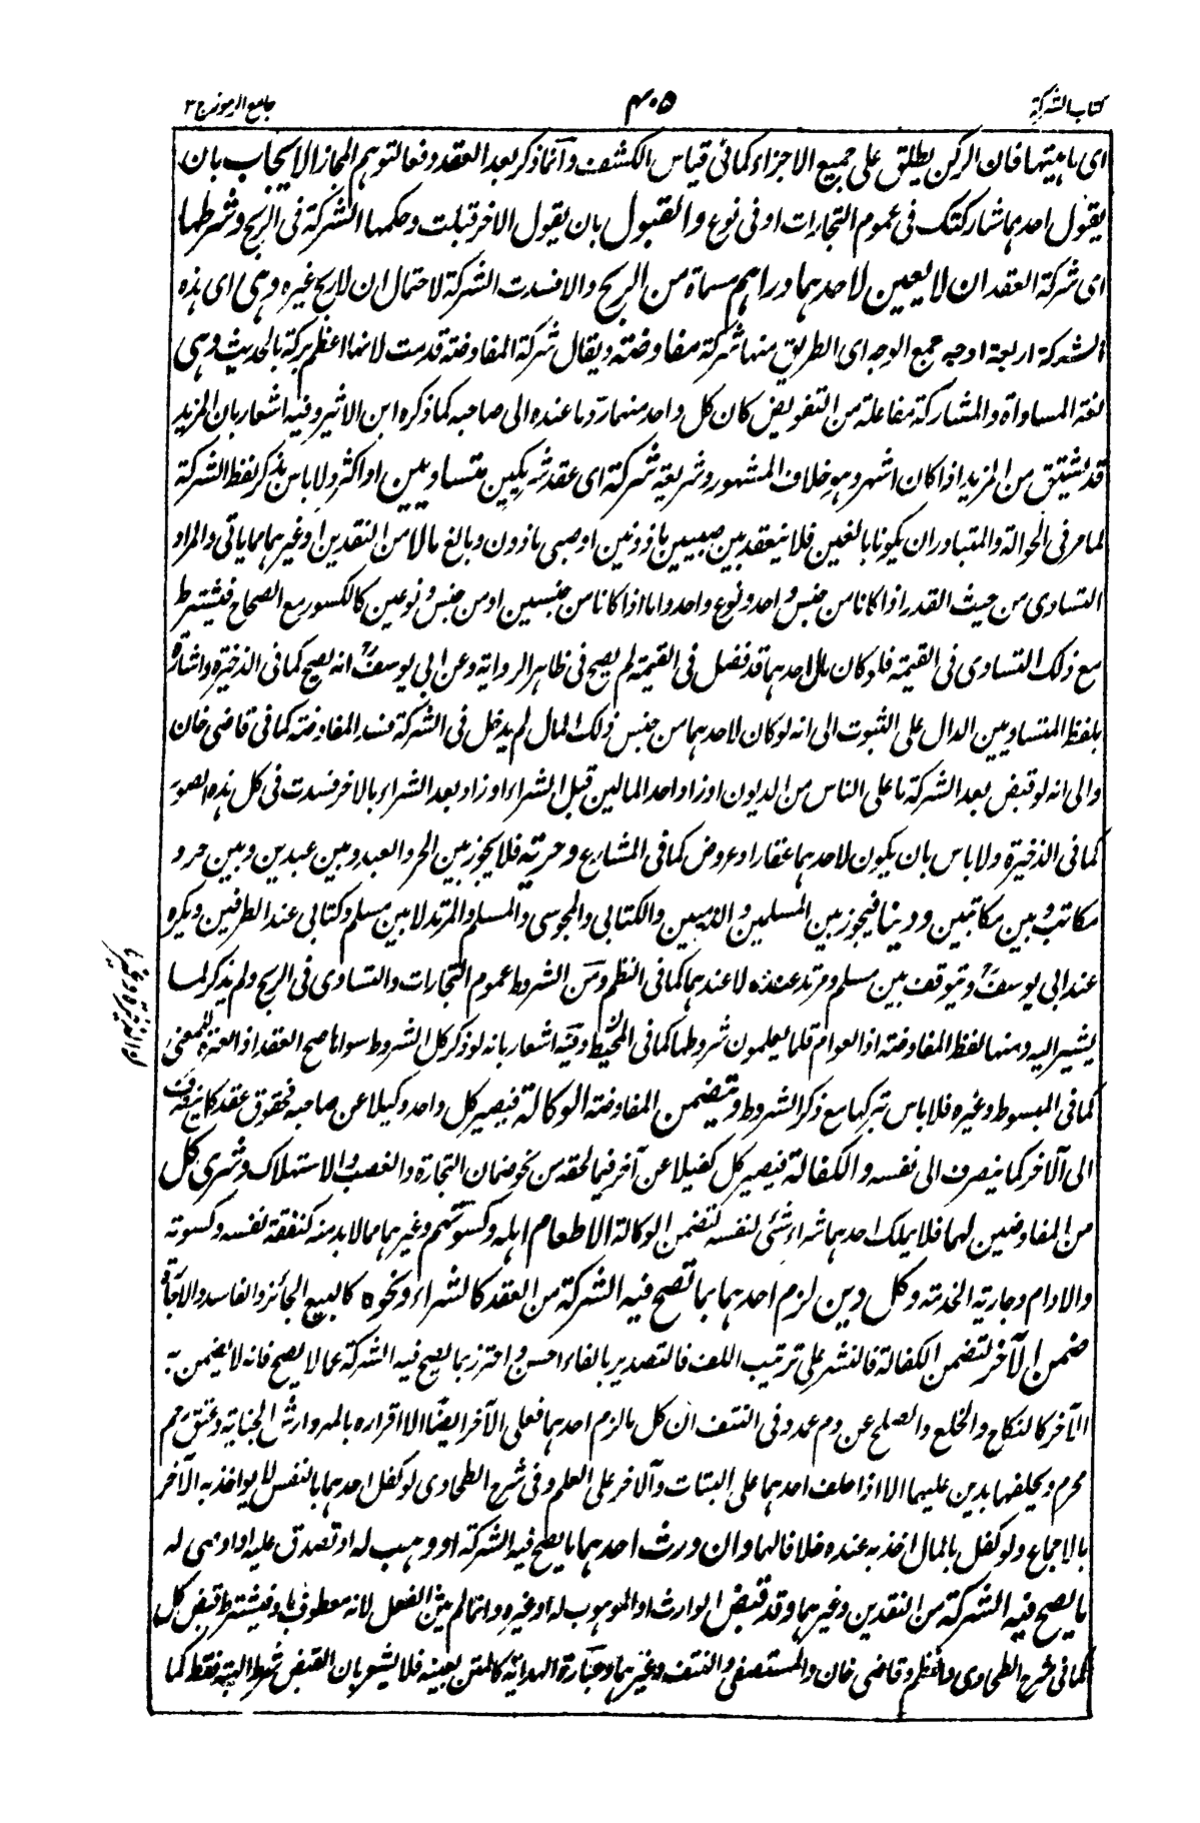 كتاب الشركة
٤٠٥
جامع الرموز ج ٣
اى ماهيتها فان الركن يطلق على جميع الاجزاء كما فى قياس الكشف وانما ذكر بعد العقد دفعا لتوهم المجاز الايجاب بان
يقول احدهما شاركتك فى عموم التجارات او فى نوع والقبول بان يقول الاخر قبلت وحكمها الشركة فى الربح وشرطها
اى شركة العقد ان لا يعين لاحدهما دراهم مسماة من الربح والا فسدت الشركة لاحتمال ان لا ربح غيره وهى اى هذه
الشركة اربعة اوجه جمع الوجه اى الطريق منها شركة مفاوضة ويقال شركة المفاوضة قدمت لانها اعظم بركة بالحديث وهى
لغة المساواة والمشاركة مفاعلة من التفويض كان كل واحد منهما رد ما عنده الى صاحبه كما ذكره ابن الاثير وفيه اشعار بان المزيد
قد يشتق من المزيد اذا كان اشهر وهو خلاف المشهور وشريعة شركة اى عقد شريكين متساويين او اكثر ولا باس بذكر لفظ الشركة
لما مر فى الحوالة والمتبادر ان يكونا بالغين فلا ينعقد بين صبيين ماذونين او صبى ماذون وبالغ مالا من النقدين او غيرهما مما ياتى والمراد
التساوى من حيث القدر اذا كانا من جنس واحد ونوع واحد واما اذا كانا من جنسين او من جنس ونوعين كالكسور مع الصحاح فيشترط
مع ذلك التساوى فى القيمة فلو كان مال احدهما قد فضل فى القيمة لم يصح فى ظاهر الرواية وعن ابى يوسف انه يصح كما فى الذخيرة واشار
بلفظ المتساويين الدال على الثبوت الى انه لو كان لاحدهما من جنس ذلك المال لم يدخل فى الشركة فسد المفاوضة كما فى قاضى خان
والى انه لو قبض بعد الشركة ما على الناس من الديون او زاد احد المالين قبل الشراء او زاد بعد الشراء بالاخر فسدت فى كل هذه الصور
كما فى الذخيرة ولا باس بان يكون لاحدهما عقار او عروض كما فى المشارع وحرية فلا يجوز بين الحر والعبد وبين عبدين وبين حر و
مكاتب وبين مكاتبين ودينا فيجوز بين المسلمين والذميين والكتابى والمجوسى والمسلم والمرتد لا بين مسلم وكتابى عند الطرفين ويكره
عند ابى يوسف وتتوقف بين مسلم ومرتد عنده لا عندهما كما فى النظم ومن الشروط عموم التجارات والتساوى فى الربح ولم يذكر لما
يشير اليه ومنها لفظ المفاوضة اذ العوام قلما يعلمون شروطها كما فى المحيط وفيه اشعار بانه لو ذكر كل الشروط سواها صح العقد اذ العبرة للمعنى
كما فى المبسوط وغيره فلا باس بتركها مع ذكر الشروط وتتضمن المفاوضة الوكالة فيصير كل واحد وكيلا عن صاحبه فحقوق عقد كل ينصرف
الى الآخر كما ينصرف الى نفسه والكفالة فيصير كل كفيلا عن آخر فيما لحقه من نحو ضمان التجارة والغصب والاستهلاك وشرى كل
من المفاوضين لهما فلا يملك احدهما شراء شئ لنفسه لتضمن الوكالة الا طعام اهله وكسوتهم وغيرهما مما لابد منه كنفقة نفسه وكسوته
والادام وجارية الخدمة وكل دين لزم احدهما بما تصح فيه الشركة من العقد كالشراء ونحوه كالبيع الجائز والفاسد والاجارة
ضمن الآخر لتضمن الكفالة فالنشر على ترتيب اللف فالتصدير بالفاء احسن واحترز بما يصح فيه الشركة عما لا يصح فانه لا يضمن به
الآخر كالنكاح والخلع والصلح عن دم عمد وفى النتف ان كل ما لزم احدهما فعلى الآخر ايضا الا اقراره بالمهر وارش الجناية وعتق رحم
محرم وبحلفها بدين عليهما الا اذا حلف احدهما على البتات والاخر على العلم وفى شرح الطحاوى لو كفل احدهما بالنفس لا يواخذ به الآخر
بالاجماع ولو كفل بالمال اخذ به عنده خلافا لهما وان ورث احدهما ما يصح فيه الشركة او وهب له او تصدق عليه او اوصى له
ما يصح فيه الشركة من النقدين وغيرهما وقد قبض الوارث او الموهوب له او غيره وانما لم يثن الفعل لانه معطوف باو فيشترط قبض كل
كما فى شرح الطحاوى والنظم وقاضى خان والمستصفى والنتف وغيرها وعبارة الهداية كالمتن بعينه فلا يشعر بان القبض شرط الهبة فقط كما